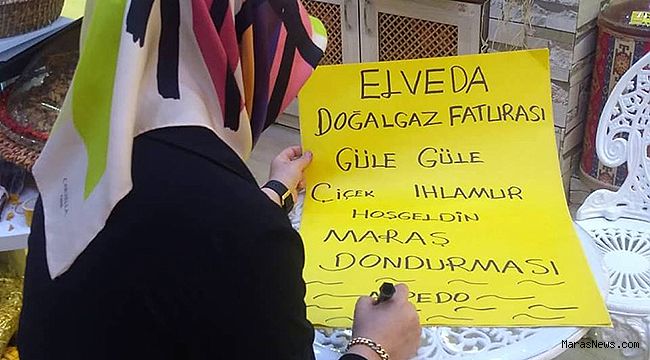 ELVEDA
DOĞALGAZ FATURASI
GÜLE GÜLE
ÇİÇEK IHLAMUR
HOŞGELDİN
MARAŞ
DONDURMASI
MarasNews.com